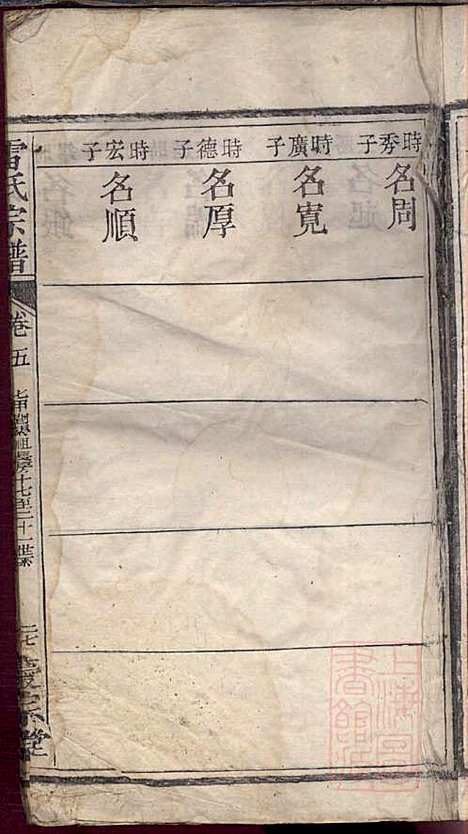 時秀子
名周
時廣子
名寬
時德子
名厚
時宏子
名順
雷氏宗譜
卷五
二七
宗堂